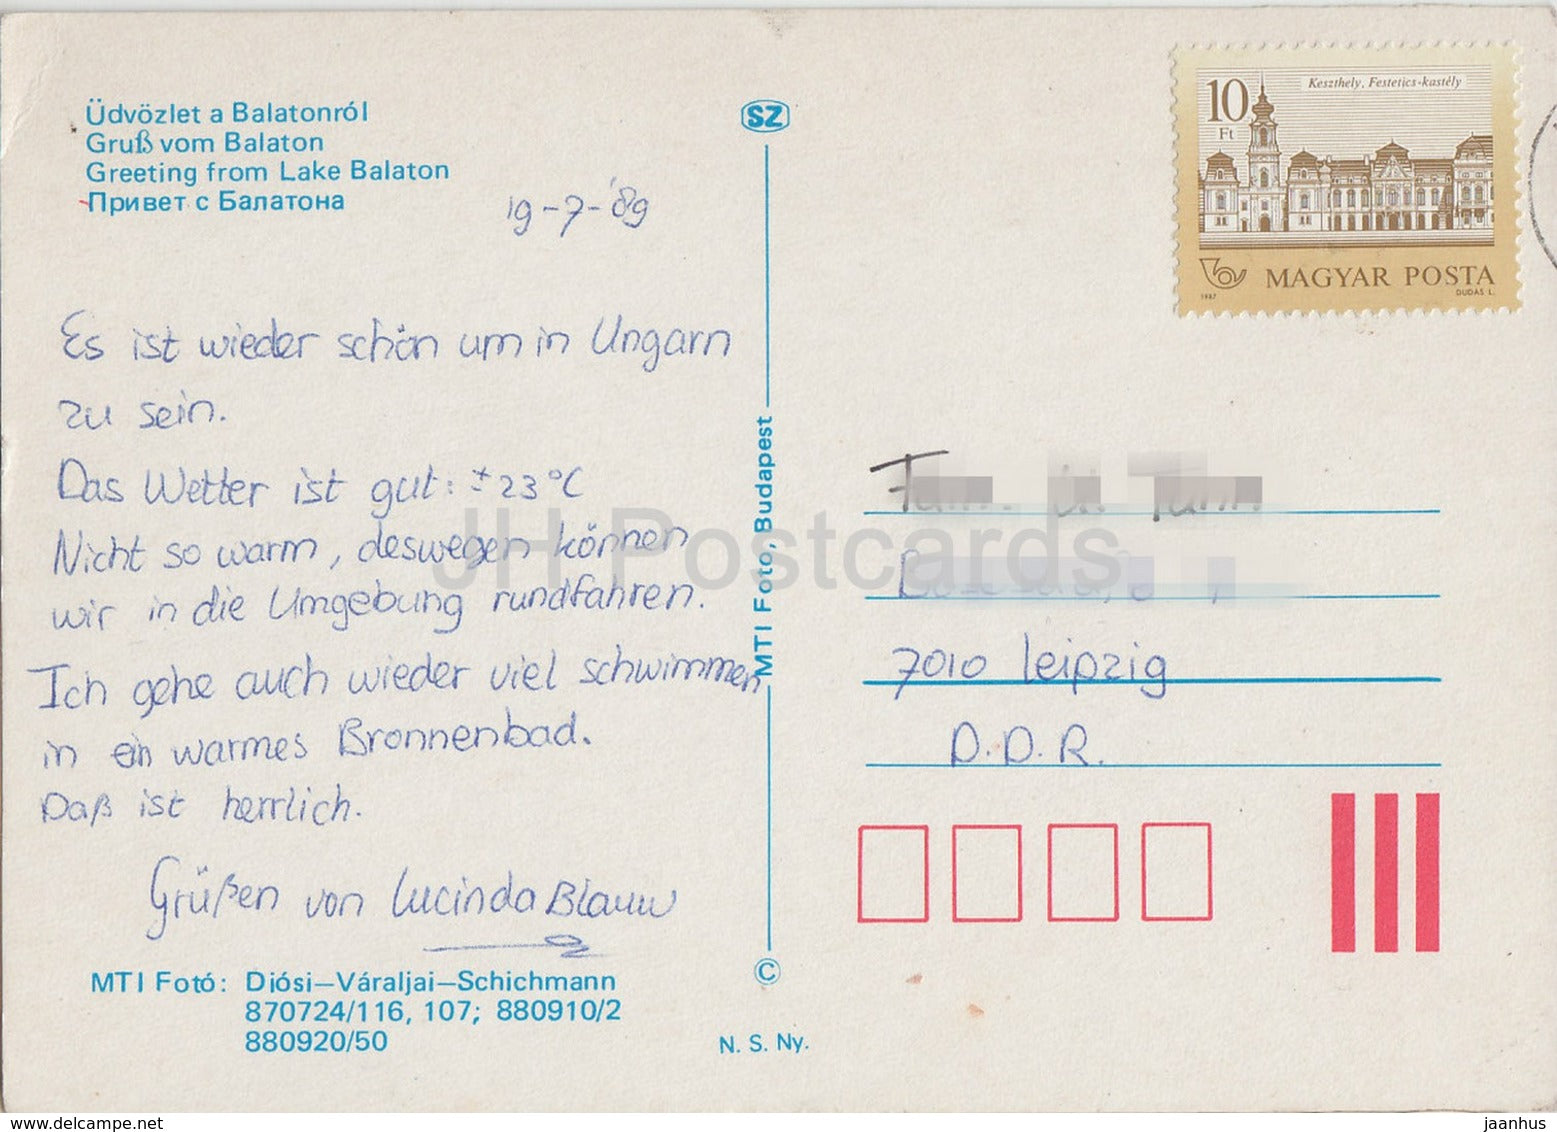 Üdvözlet a Balatonról
Gruß vom Balaton
Greeting from Lake Balaton
Привет с Балатона
19-7-'89
Es ist wieder schön um in Ungarn
zu sein.
Das Wetter ist gut: ± 23 °C
Nicht so warm, deswegen können
wir in die Umgebung rundfahren.
Ich gehe auch wieder viel schwimmen
in ein warmes Bronnenbad.
Daß ist herrlich.
Grüßen von Lucinda Blauw
MTI Fotó: Diósi—Váraljai—Schichmann
870724/116, 107; 880910/2
880920/50
SZ
MTI Foto, Budapest
©
N. S. Ny.
10
Ft
Keszthely, Festetics-kastély
MAGYAR POSTA
1987
DUDÁS L.
7010 Leipzig
D.D.R.
JH Postcards
www.delcampe.net
jaanhus